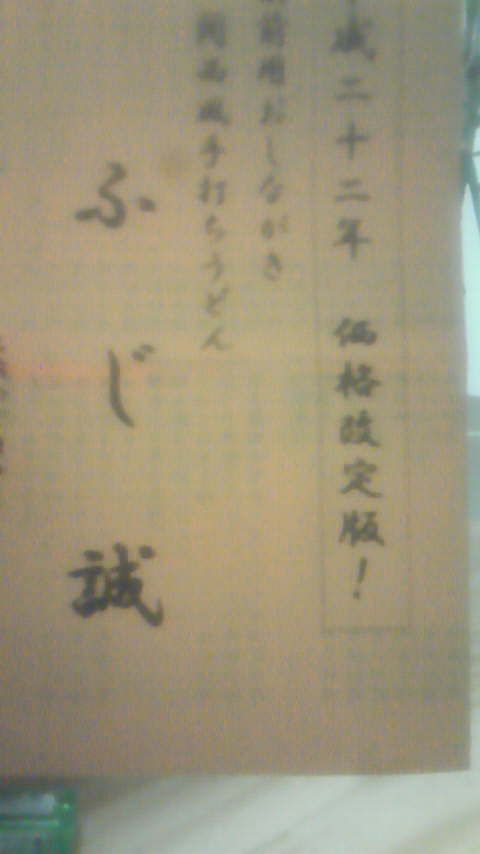 成二十二年 価格改定版!
前用おしながき
関西風手打ちうどん
ふじ誠